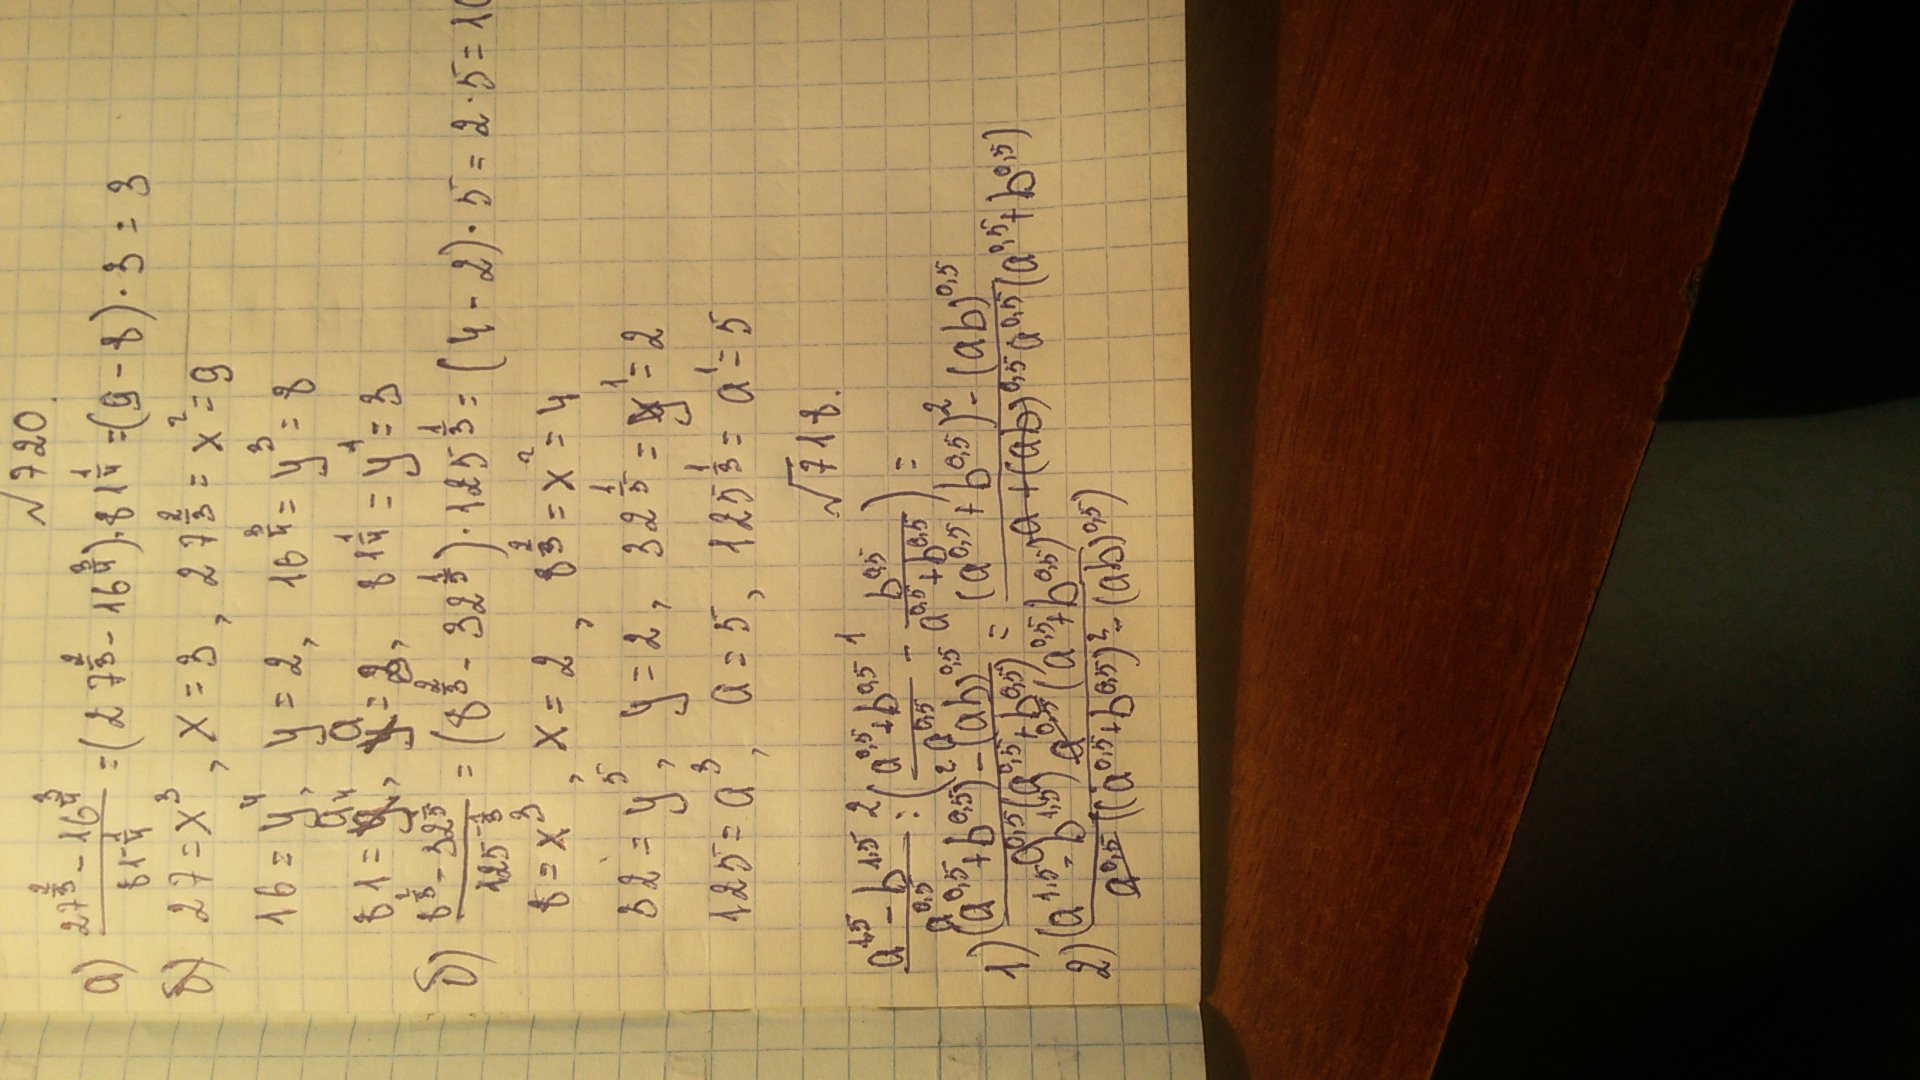 №720.
а) (27^(2/3) - 16^(3/4)) / 81^(-1/4) = (27^(2/3) - 16^(3/4)) · 81^(1/4) = (9 - 8) · 3 = 3
27 = x^3, x = 3, 27^(2/3) = x^2 = 9
16 = y^4, y = 2, 16^(3/4) = y^3 = 8
81 = a^4, a = 3, 81^(1/4) = y^1 = 3
б) (8^(2/3) - 32^(1/5)) / 125^(-1/3) = (8^(2/3) - 32^(1/5)) · 125^(1/3) = (4 - 2) · 5 = 2 · 5 = 10
8 = x^3, x = 2, 8^(2/3) = x^2 = 4
32 = y^5, y = 2, 32^(1/5) = y^1 = 2
125 = a^3, a = 5, 125^(1/3) = a^1 = 5
№718.
(a^1,5 - b^1,5) / a^0,5 : ((a^0,5 + b^0,5) / a^0,5 - b^0,5 / (a^0,5 + b^0,5)) =
1) ((a^0,5 + b^0,5)^2 - (ab)^0,5) / (a^0,5(a^0,5 + b^0,5)) = ((a^0,5 + b^0,5)^2 - (ab)^0,5) / (a^0,5(a^0,5 + b^0,5))
2) (a^1,5 - b^1,5) a^0,5 (a^0,5 + b^0,5) / (a^0,5((a^0,5 + b^0,5)^2 - (ab)^0,5)